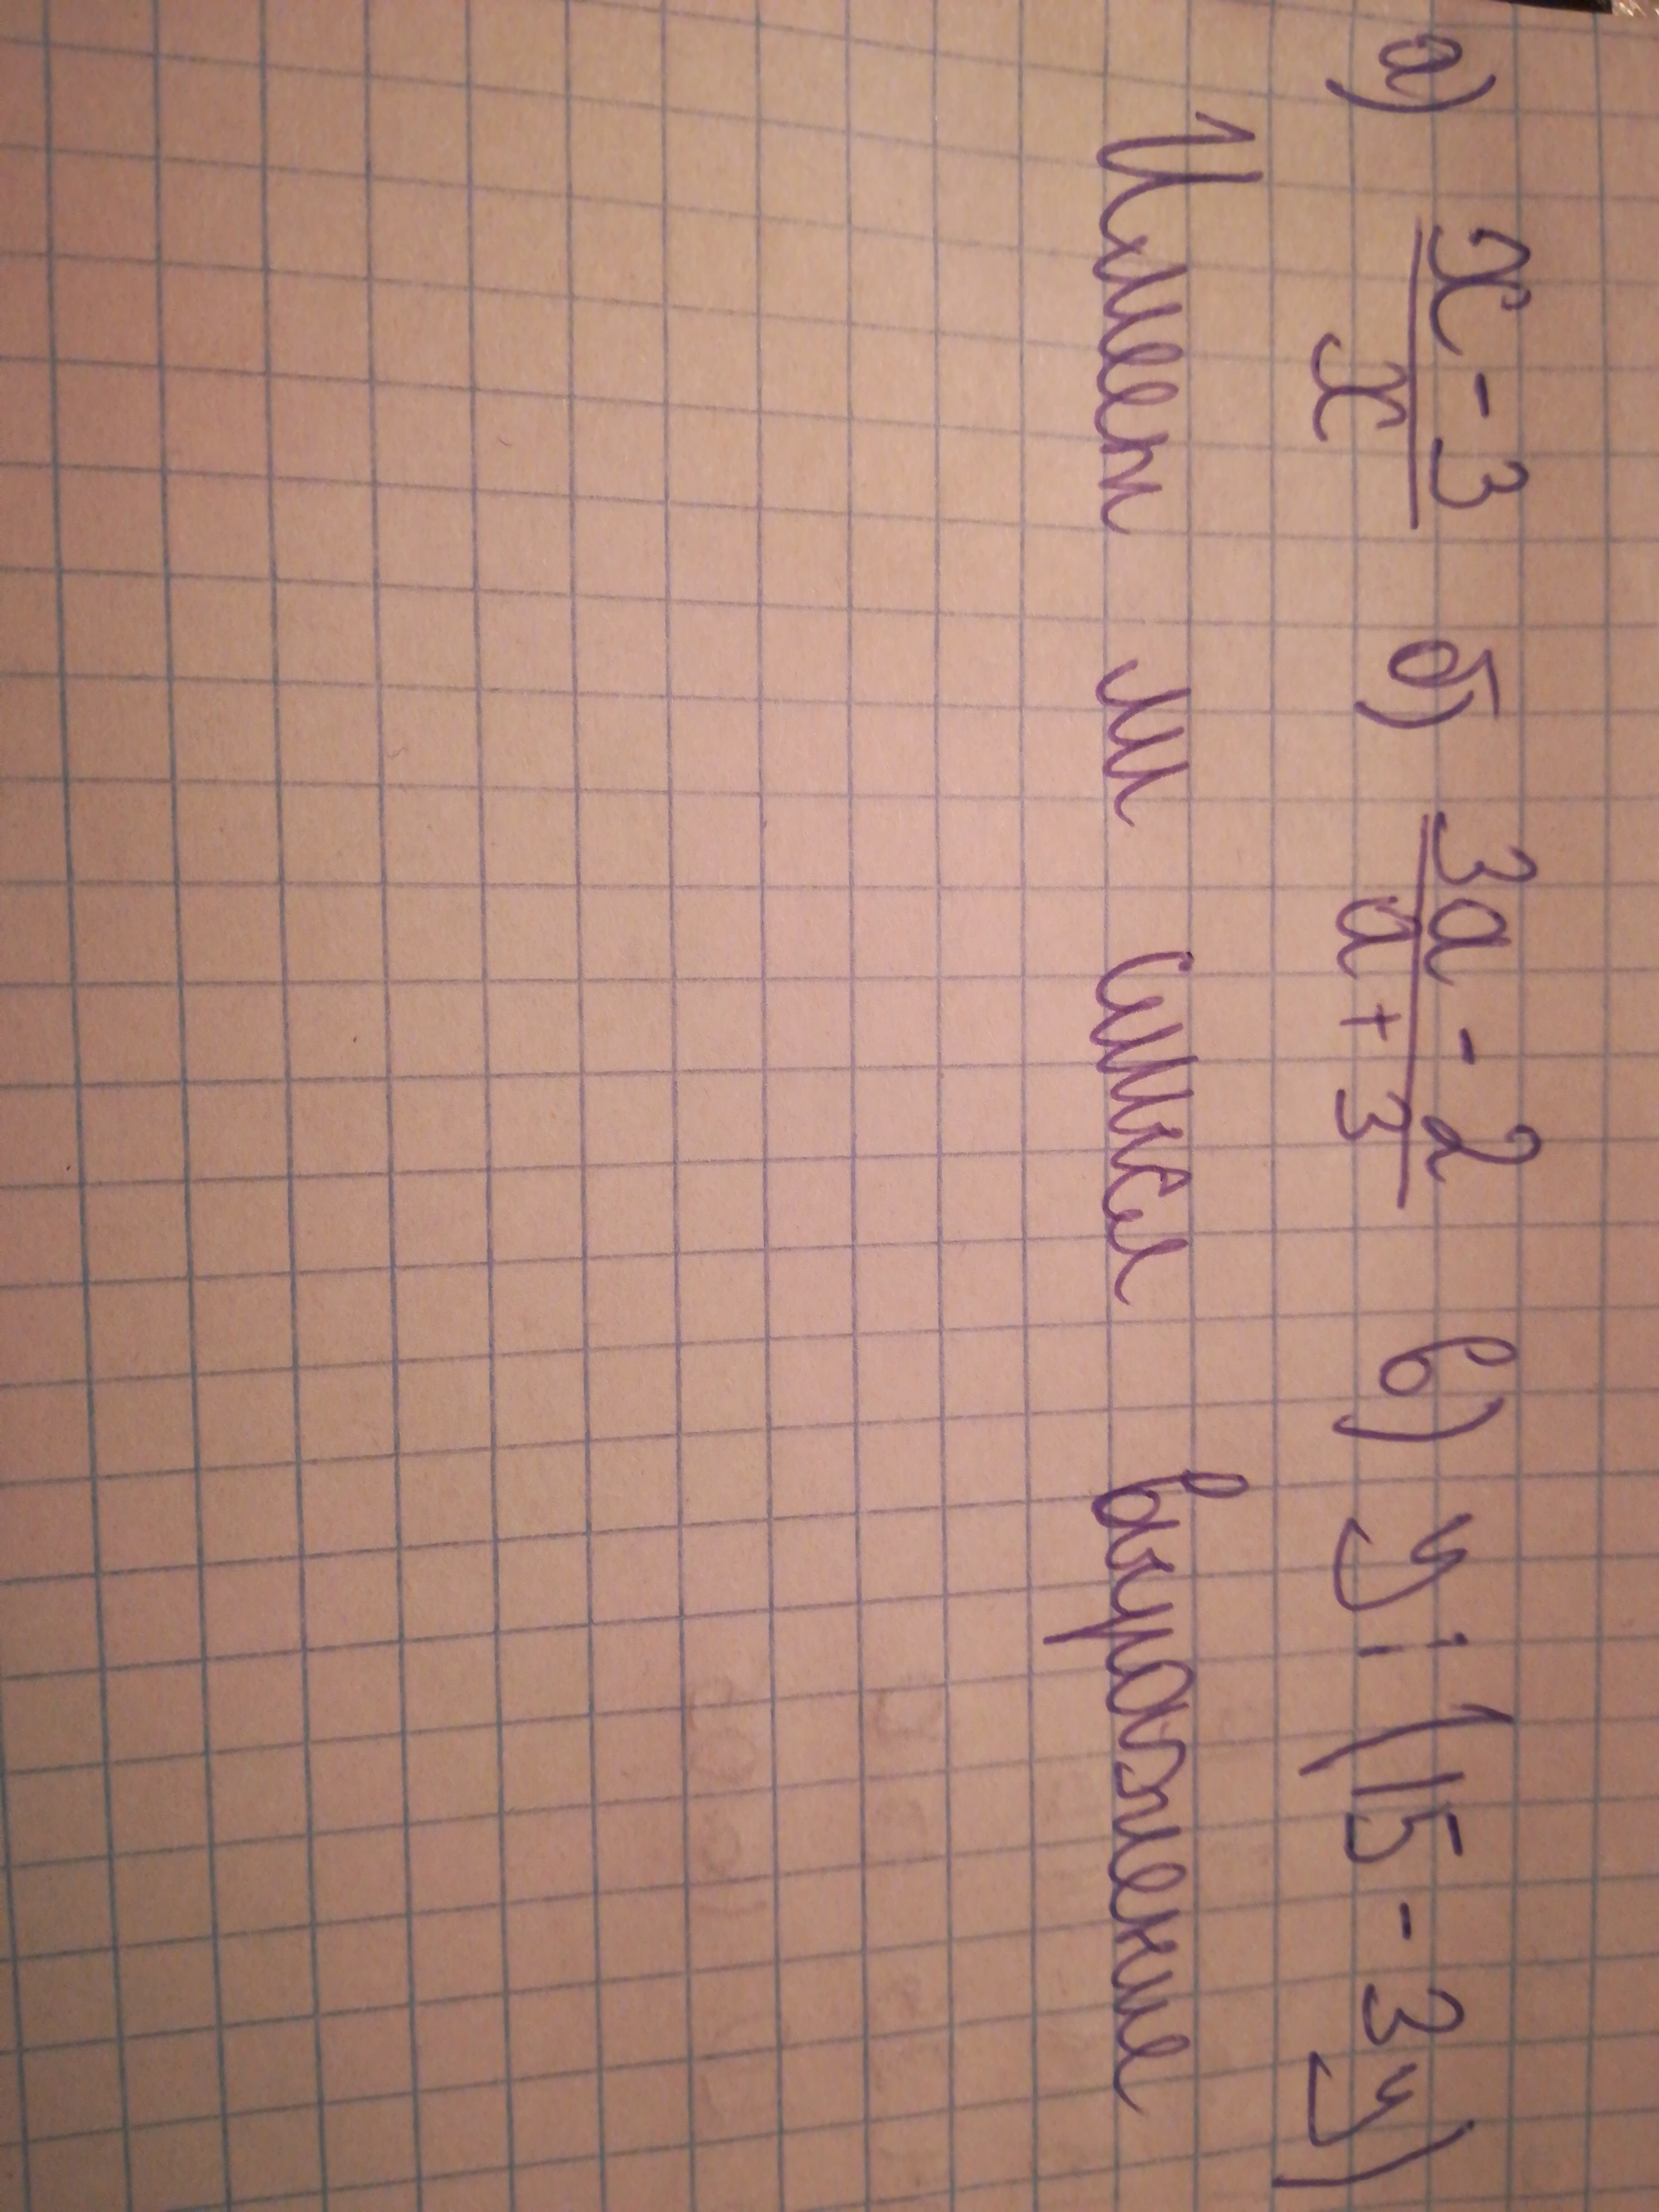 а) x - 3 / x б) 3a - 2 / a + 3 в) y : (15 - 3y)
Имеет ли смысл выражение